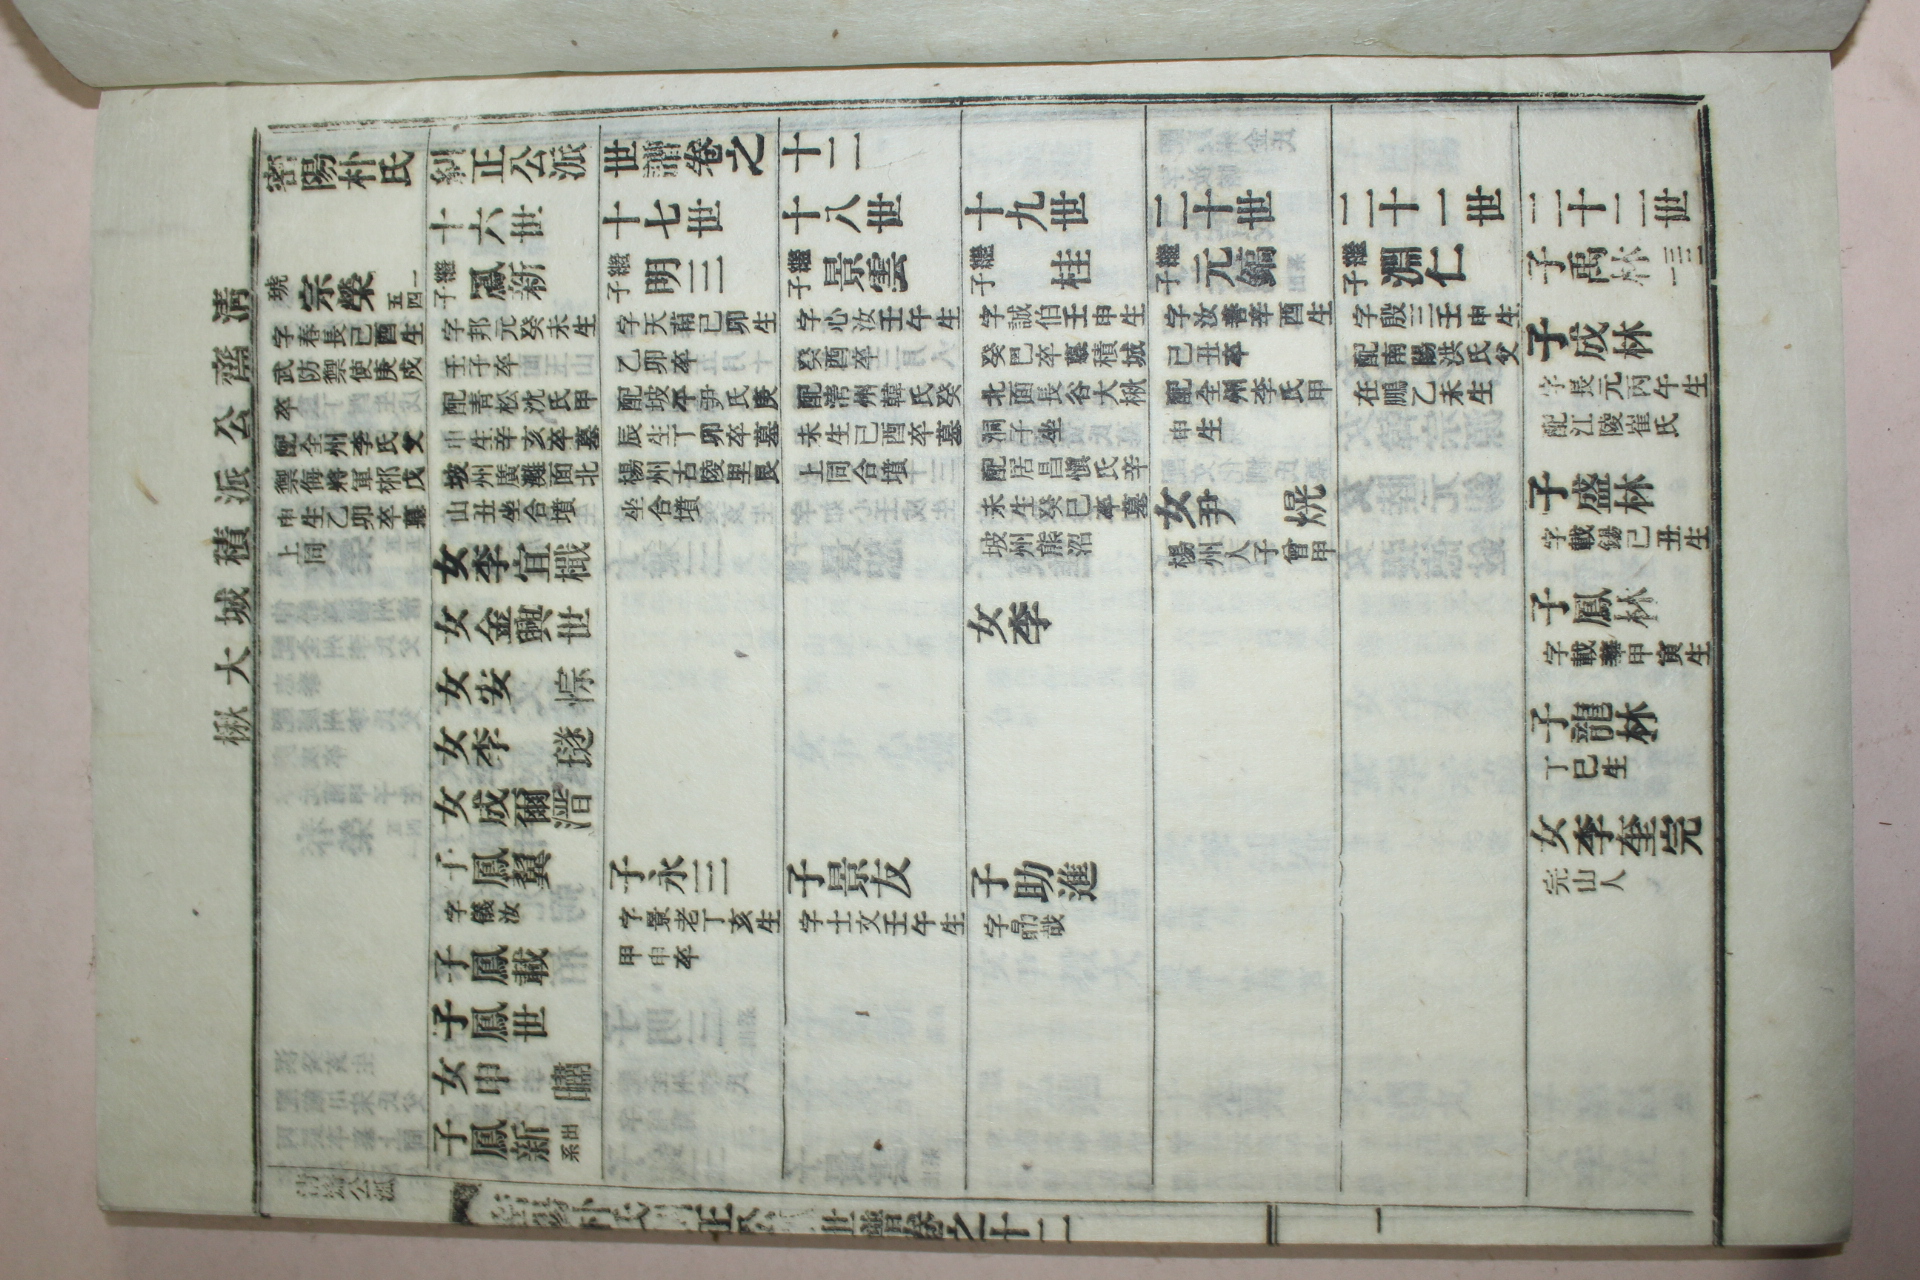 密陽朴氏糾正公派世譜卷之十二
淸齋公派積城大楸
宗榮 一四五
字春長己酉生
武防禦使庚戌
卒
配全州李氏父
禦侮將軍祁戊
申生乙卯卒墓
上同
十六世
繼子鳳新
字邦元癸未生
壬子卒
配靑松沈氏甲
申生辛亥卒墓
坡州廣灘面北
山丑坐合墳
女李宜樴
女金興世
女安悰
女李璲
女成爾溍
子鳳翼
字儀汝
子鳳載
子鳳世
女申
子鳳新 系出
十七世
繼子明三
字天甫己卯生
乙卯卒
配坡平尹氏庚
辰生丁卯卒墓
楊州古陵里艮
坐合墳
子永三
字景老丁亥生
甲申卒
十八世
繼子景雲
字心汝壬午生
癸酉卒
配淸州韓氏癸
未生己酉卒墓
上同合墳
子景友
字士文壬午生
十九世
繼子桂
字誠伯壬申生
癸巳卒墓積城
北面長谷大楸
洞子坐
配居昌愼氏辛
未生癸巳卒墓
坡州熊沼
女李
子助進
字勗哉
二十世
繼子元鎬
字汝善辛酉生
己丑卒
配全州李氏甲
申生
女尹熀
楊州人子曾甲
二十一世
繼子淵仁
字殷三壬申生
配南陽洪氏父
在鵬乙未生
二十二世
子禹林 一三三
子成林
字長元丙午生
配江陵崔氏
子盛林
字載錫己丑生
子鳳林
字載華甲寅生
子龍林
丁巳生
女李奎完
完山人
密陽朴氏糾正公派世譜卷之十二
一